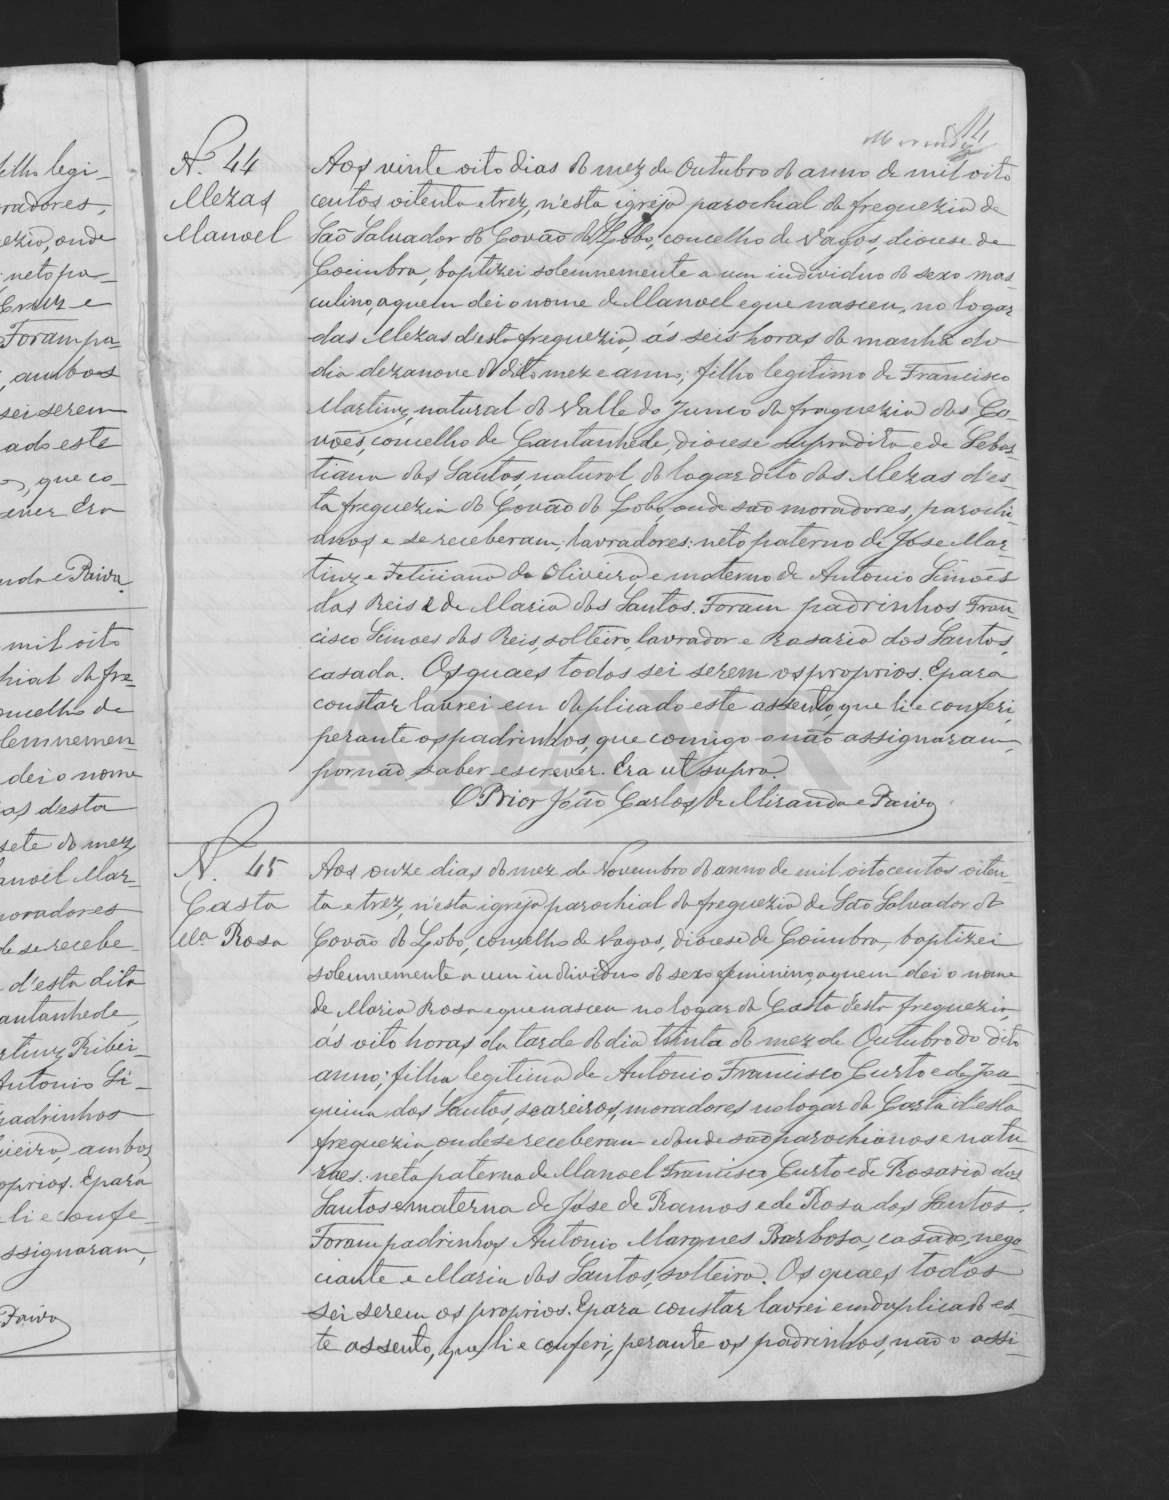 14
Miranda
N.º 44
Mezas
Manoel
Aos vinte oito dias do mez de Outubro do anno de mil oito
centos oitenta e trez, n'esta igreja parochial da freguezia de
São Salvador do Covão do Lobo, concelho de Vagos, diocese de
Coimbra, baptizei solemnemente a um individuo do sexo mas
culino, a quem dei o nome de Manoel e que nasceu, no logar
das Mezas d'esta freguezia, ás seis horas da manhã do
dia dezanove do dito mez e anno; filho legitimo de Francisco
Martinz, natural do Valle do Junco da freguezia dos Co
vões, concelho de Cantanhede, diocese supradita e de Sebas-
tiana dos Santos, natural do logar dito das Mezas d'es-
ta freguezia do Covão do Lobo, onde são moradores, parochi-
anos e se receberam; lavradores: neto paterno de José Mar-
tinz e Feliciana de Oliveira, e materno de Antonio Simões
dos Reis e de Maria dos Santos. Foram padrinhos Fran-
cisco Simoes dos Reis, solteiro, lavrador e Rosaria dos Santos,
casada. Os quaes todos sei serem os proprios. E para
constar lavrei em duplicado este assento, que li e conferi,
perante os padrinhos, que comigo o não assignaram,
por não saber escrever. Era ut supra.
O Prior João Carlos de Miranda e Paiva
N. 45
Casta
M.ª Rosa
Aos onze dias do mez de Novembro do anno de mil oitocentos oiten-
ta e trez, n'esta igreja parochial da freguezia de São Salvador do
Covão do Lobo, concelho de Vagos, diocese de Coimbra, baptizei
solemnemente a um individuo do sexo feminino, a quem dei o nome
de Maria Rosa e que nasceu no logar da Casta d'esta freguezia,
ás oito horas da tarde do dia trinta do mez de Outubro do dito
anno; filha legitima de Antonio Francisco Curto e de Joa-
quina dos Santos, seareiros, moradores no logar da Casta d'esta
freguezia, onde se receberam e donde são parochianos e natu-
raes: neta paterna de Manoel Francisco Curto e de Rosaria dos
Santos e materna de José de Ramos e de Rosa dos Santos.
Foram padrinhos Antonio Marques Barbosa, casado, nego-
ciante e Maria dos Santos, solteira. Os quaes todos
sei serem os proprios. E para constar lavrei em duplicado es-
te assento, que li e conferi, perante os padrinhos, não o assi-
filho legi-
radores,
ezia, onde
neto pa-
Cruz e
Foram pa-
, ambos
sei serem
ado este
, que co-
ever. Era
nda e Paiva
mil oito
hial da fre-
oncelho de
lemnemen-
dei o nome
as d'esta
sete do mez
anoel Mar-
moradores
de se recebe
d'esta dita
antanhede,
rtinz Ribei-
Antonio Si-
padrinhos
ueira, ambos
oprios. E para
li e confe-
ssignaram,
Paiva
ADAVR